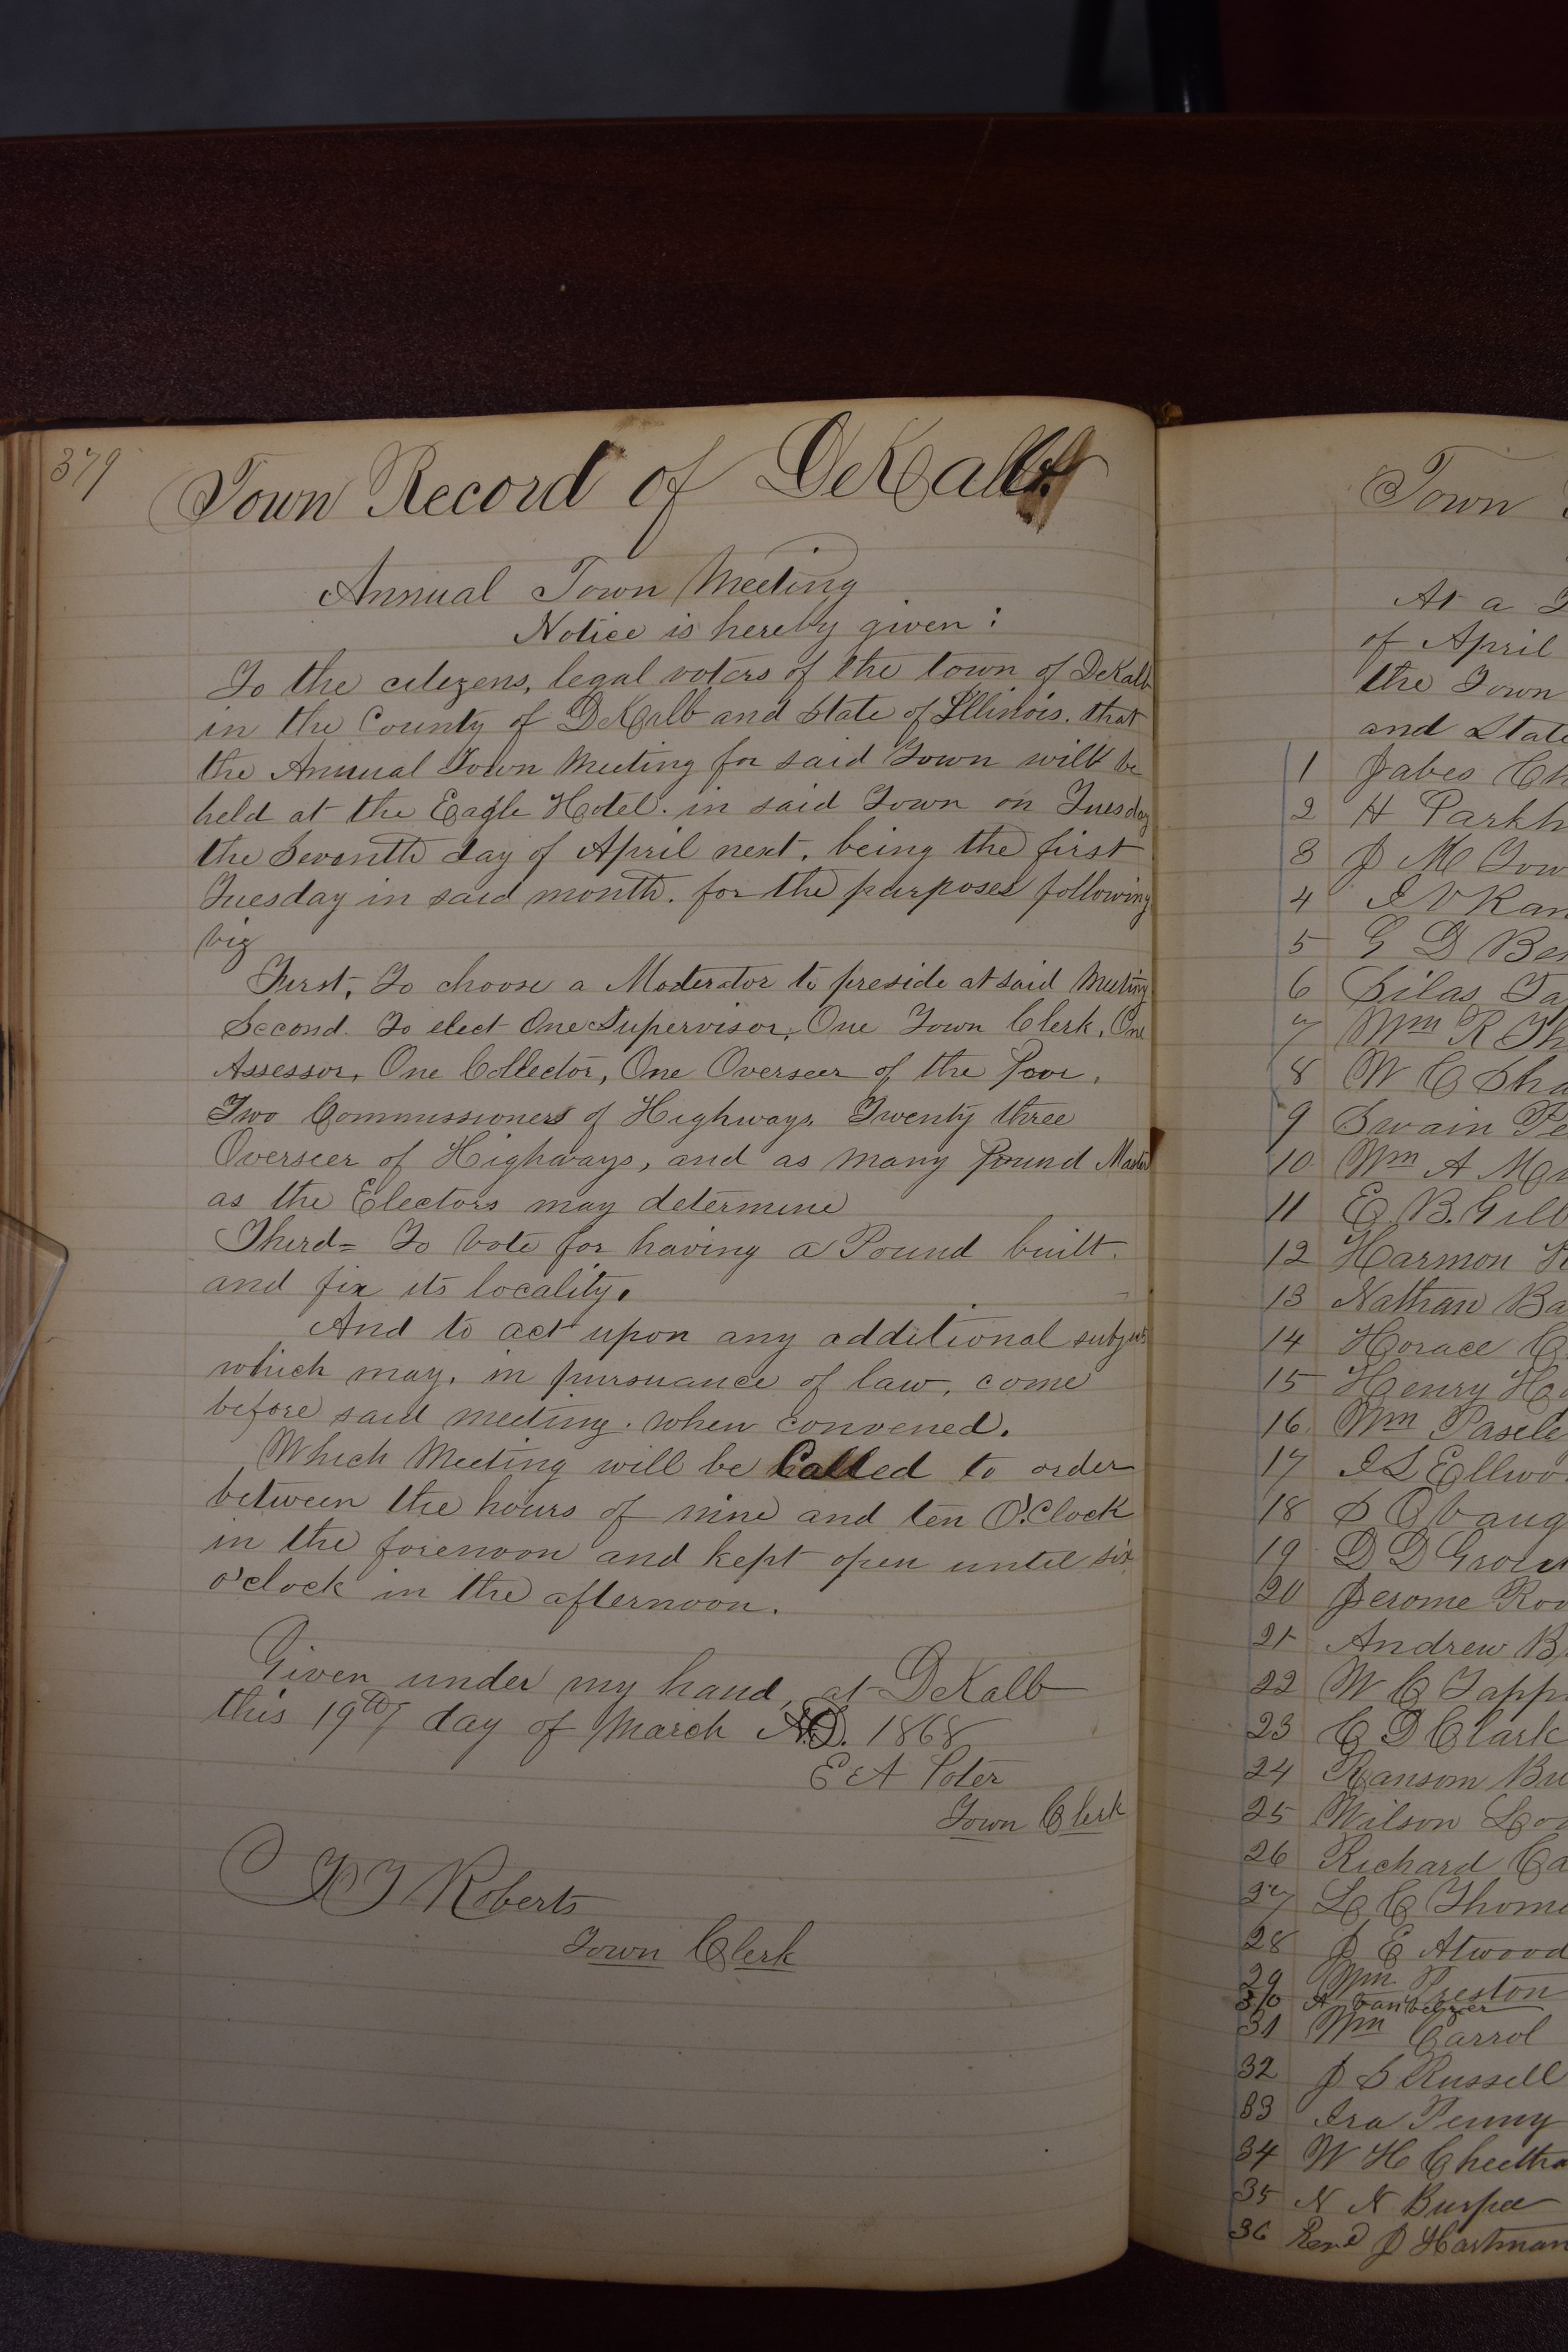 379
Town Record of DeKalb
Annual Town Meeting
Notice is hereby given:
To the citizens, legal voters of the town of DeKalb
in the County of DeKalb and State of Illinois. that
the Annual Town Meeting for said Town will be
held at the Eagle Hotel. in said Town on Tuesday
the Seventh day of April next. being the first
Tuesday in said month. for the purposes following
viz
First, To choose a Moderator to preside at said Meeting
Second. To elect One Supervisor, One Town Clerk, One
Assessor, One Collector, One Overseer of the Poor,
Two Commissioners of Highways, Twenty three
Overseer of Highways, and as many Pound Master
as the Electors may determine
Third = To vote for having a Pound built.
and fix its locality.
And to act upon any additional subject
which may, in pursuance of law, come
before said meeting. when convened.
Which Meeting will be Called to order
between the hours of nine and ten O'Clock
in the forenoon and kept open until six
o'clock in the afternoon.
Given under my hand, at DeKalb
this 19th day of March A.D. 1868
E A Poter
Town Clerk
Roberts
Town Clerk
Town
At a
of April
the Town
and State
1 Jabes Ch
2 H Parkh
3 J M Tow
4 I V Ran
5 G D Be
6 Silas Ta
7 Wm R Th
8 W C Sha
9 Swain Te
10 Wm A Mar
11 E B. Gilb
12 Harmon
13 Nathan Ba
14 Horace C
15 Henry Ho
16 Wm Pasele
17 I L Ellwo
18 S O Vaug
19 D D Grou
20 Jerome Roo
21 Andrew B
22 W C Tapp
23 C D Clark
24 Ransom Bu
25 Wilson Lo
26 Richard Ca
27 L C Thom
28 J E Atwood
29 Wm Preston
30 A
31 Wm Carrol
32 J S Russell
33 Ira Penny
34 W H Cheetha
35 N N Burpee
36 Rend J Hartman